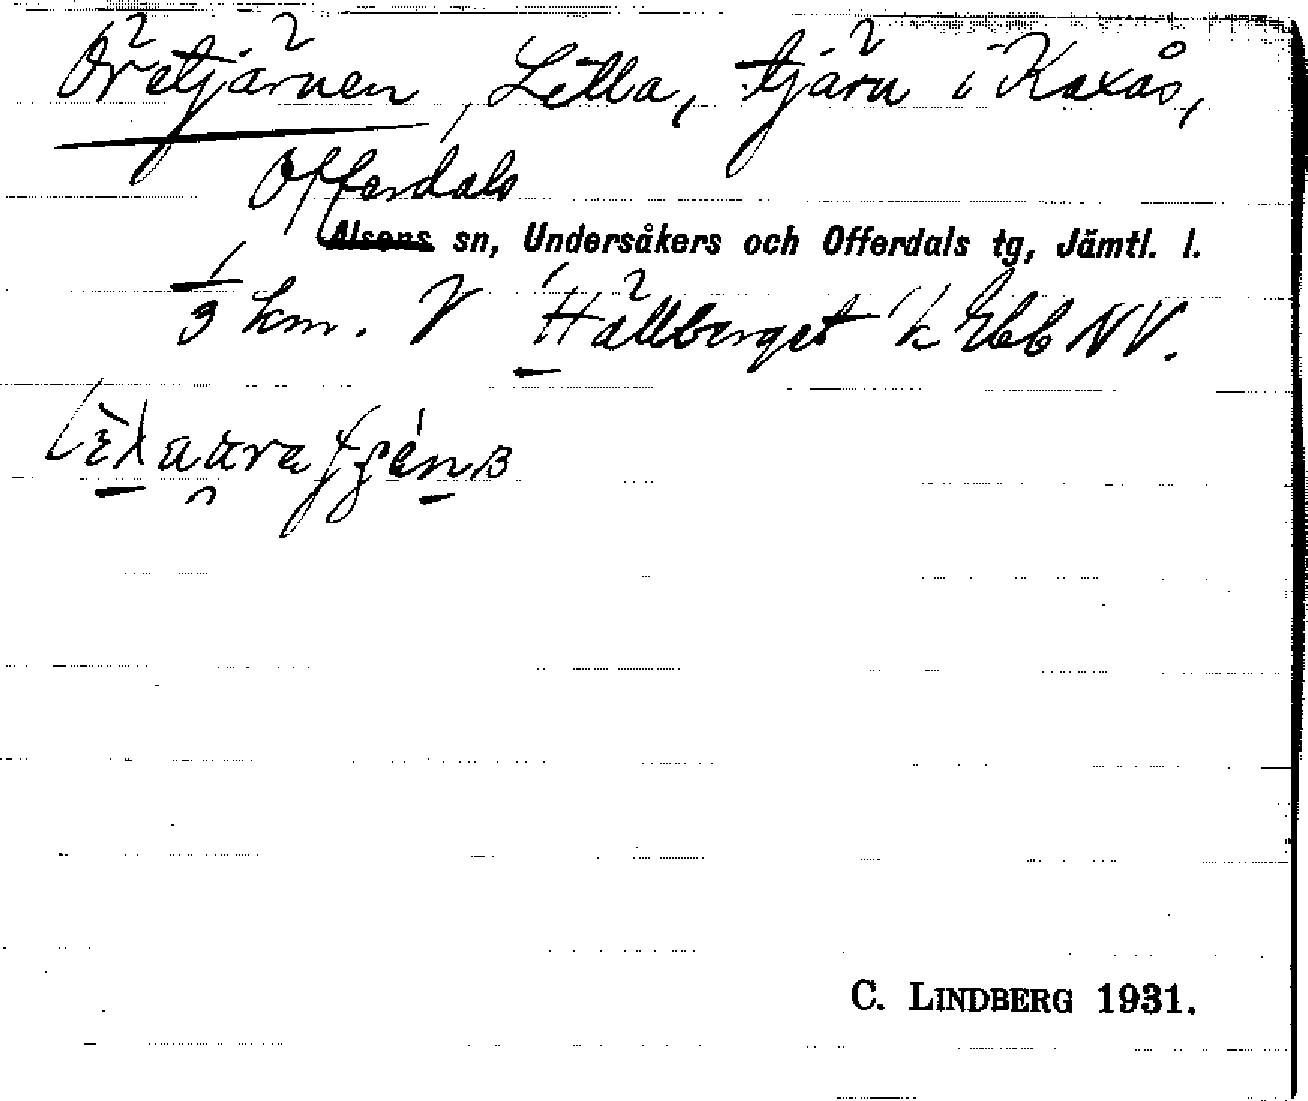 Öretjärnen, Lilla, tjärn i Kaxås,
Offerdals
Alsens sn, Undersåkers och Offerdals tg, Jämtl. l.
1/3 km. V Hällberget k Ebb NV.
C. LINDBERG 1931.